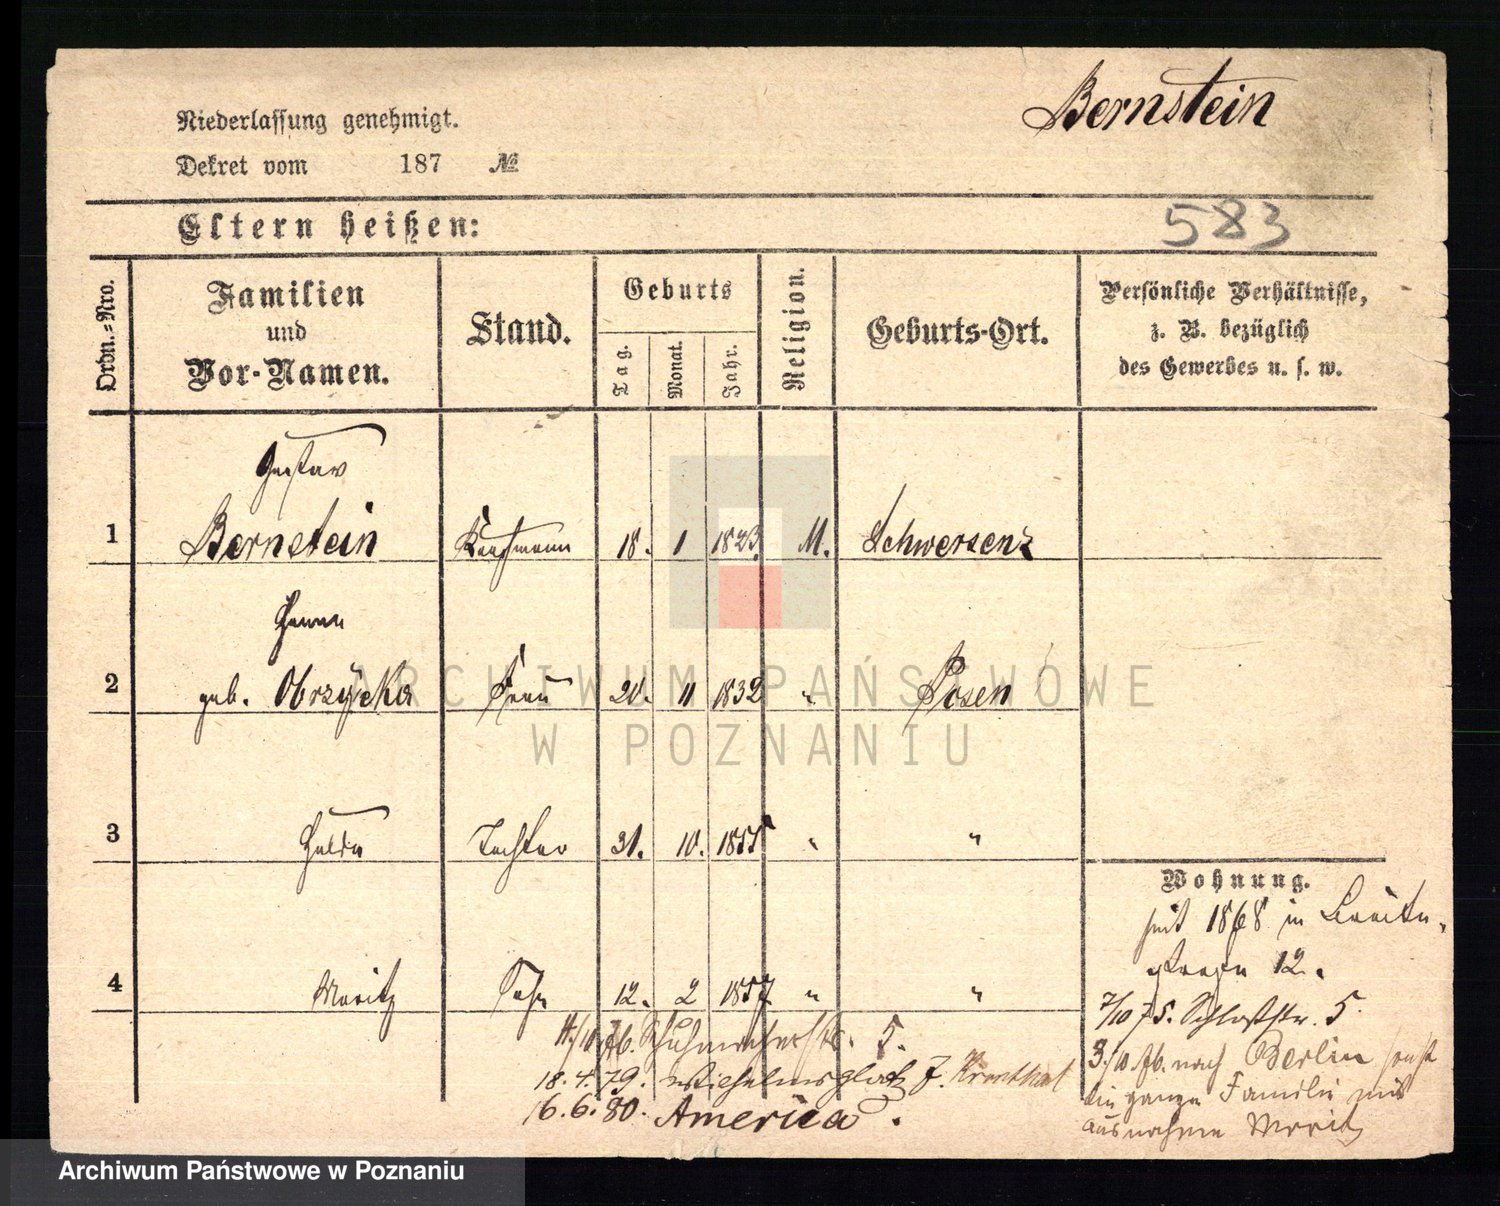 Bernstein
Niederlassung genehmigt.
Dekret vom 187 №
Eltern heißen:
583
Ordn.-Nro.
Familien und Vor-Namen.
Stand.
Geburts
Tag.
Monat.
Jahr.
Religion.
Geburts-Ort.
Persönliche Verhältnisse,
z. B. bezüglich
des Gewerbes u. s. w.
Gustav
1 Bernstein Kaufmann 18. 1 1823. M. Schwersenz
2 geb. Obrzycka Frau 20. 11 1832 " Posen
3 Hulda Tochter 31. 10. 1855 " "
4 Moritz Sohn 12. 2 1857 " "
Wohnung.
seit 1868 in Breite-
straße 12.
7/10 75. Schloßstr. 5.
3/10. 76. nach Berlin
die ganze Familie mit
ausnahme Moritz
76. Schuhmacherstr. 5.
18.4.79. Wilhelmsplatz 7. Kronthal
16.6.80. America.
ARCHIWUM PAŃSTWOWE
W POZNANIU
Archiwum Państwowe w Poznaniu